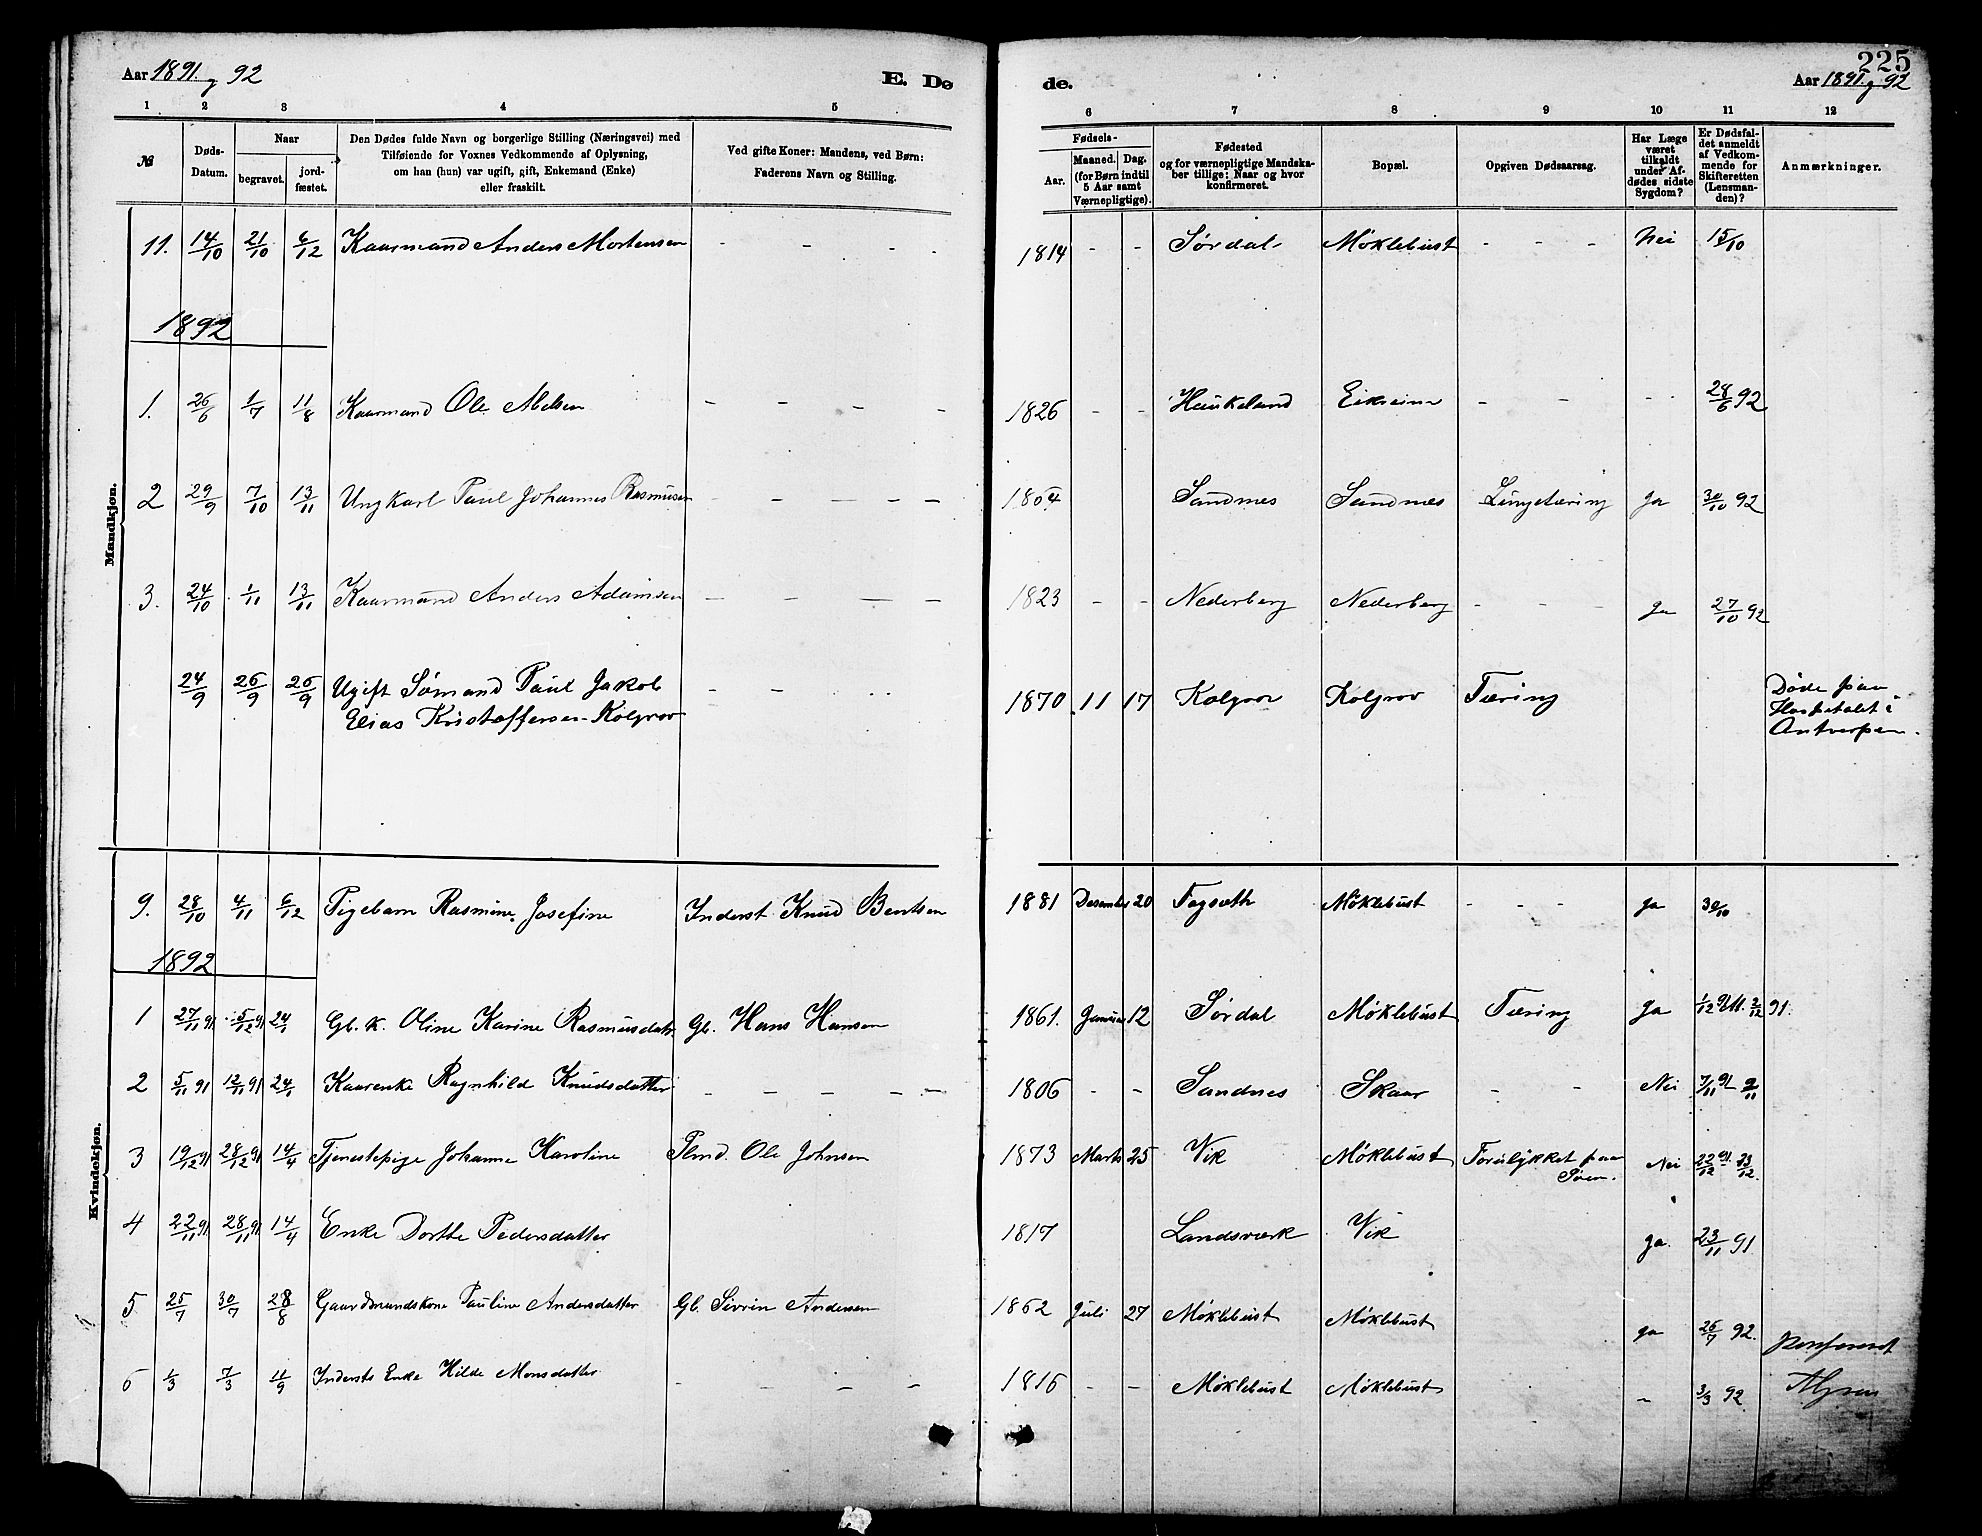 225
Aar 1891 og 92
E. Dø
de.
Aar 1891 og 92
1 2 3 4 5 6 7 8 9 10 11 12
№
Døds-Datum.
Naar
begravet.
jord-fæstet.
Den Dødes fulde Navn og borgerlige Stilling (Næringsvei) med
Tilføiende for Voxnes Vedkommende af Oplysning,
om han (hun) var ugift, gift, Enkemand (Enke)
eller fraskilt.
Ved gifte Koner: Mandens, ved Børn:
Faderens Navn og Stilling.
Fødsels-
Aar.
Maaned. Dag.
(for Børn indtil
5 Aar samt
Værnepligtige).
Fødested
og for værnepligtige Mandska-
ber tillige: Naar og hvor
konfirmeret.
Bopæl.
Opgiven Dødsaarsag.
Har Læge
været
tilkaldt
under Af-
dødes sidste
Sygdom?
Er Dødsfal-
det anmeldt
af Vedkom-
mende for
Skifteretten
(Lensman-
den)?
Anmærkninger.
Mandkjøn.
11. 14/10 21/10 6/12 Kaarmand Anders Mortensen - - - - 1814 - - Sørdal Møklebust - - - Nei 15/10
1892
1. 26/6 1/7 11/8 Kaarmand Ole Melsen - - - - 1826 - - Haukeland Eikreim - - - - 28/6 92
2 29/9 7/10 13/11 Ungkarl Paul Johannes Rasmusen - - - - - 1864 Sandnes Sandnes Lungetæring Ja 30/10 92
3. 24/10 1/11 13/11 Kaarmand Anders Adamsen - - - - 1823 - - Nederberg Nederberg - - - Ja 27/10 92
24/9 26/9 26/9 Ugift Sømand Paul Jakob - - - - 1870 11 17 Kolgrov Kolgrov Tæring Døde paa
Elias Kristoffersen Kolgrov Hospitalet i
Antverpen.
Kvindekjøn.
9. 28/10 4/11 6/12 Pigebarn Rasmine Josefine Inderst Knud Bentsen 1881 Desember 20 Fagsæth Møklebust - - - Ja 30/10
1892
1 27/11 91 5/12 91 24/1 Gb. k. Oline Karine Rasmusdatr Gb. Hans Hansen 1861. Januar 12 Sørdal Møklebust Tæring Ja 1/12 91 2/12 91.
2 5/11 91 12/11 91 24/1 Kaarenke Ragnhilde Knudsdatter - - - - - 1806 - - Sandnes Skaar - - Nei 7/11 91 9/11
3 19/12 91 28/12 91 14/4 Tjenestepige Johanne Karoline Plmd. Ole Johnsen 1873 Marts 25 Vik Møklebust Forulykket paa Nei 22/12 91. 23/12
Søen.
4 22/11 91 28/11 91 14/4 Enke Dorthe Pedersdatter 1817 Landsværk Vik Ja 23/11 91
5 25/7 30/7 28/8 Gaardmandskone Pauline Andersdatter Gb. Sivrin Andersen 1862 Juli 27 Møklebust Møklebust Ja 26/7 92.
6 1/3 7/3 11/9 Inderste Enke Hilde Monsdatter - - - - 1816 - - Møklebust Møklebust - 3/3 92